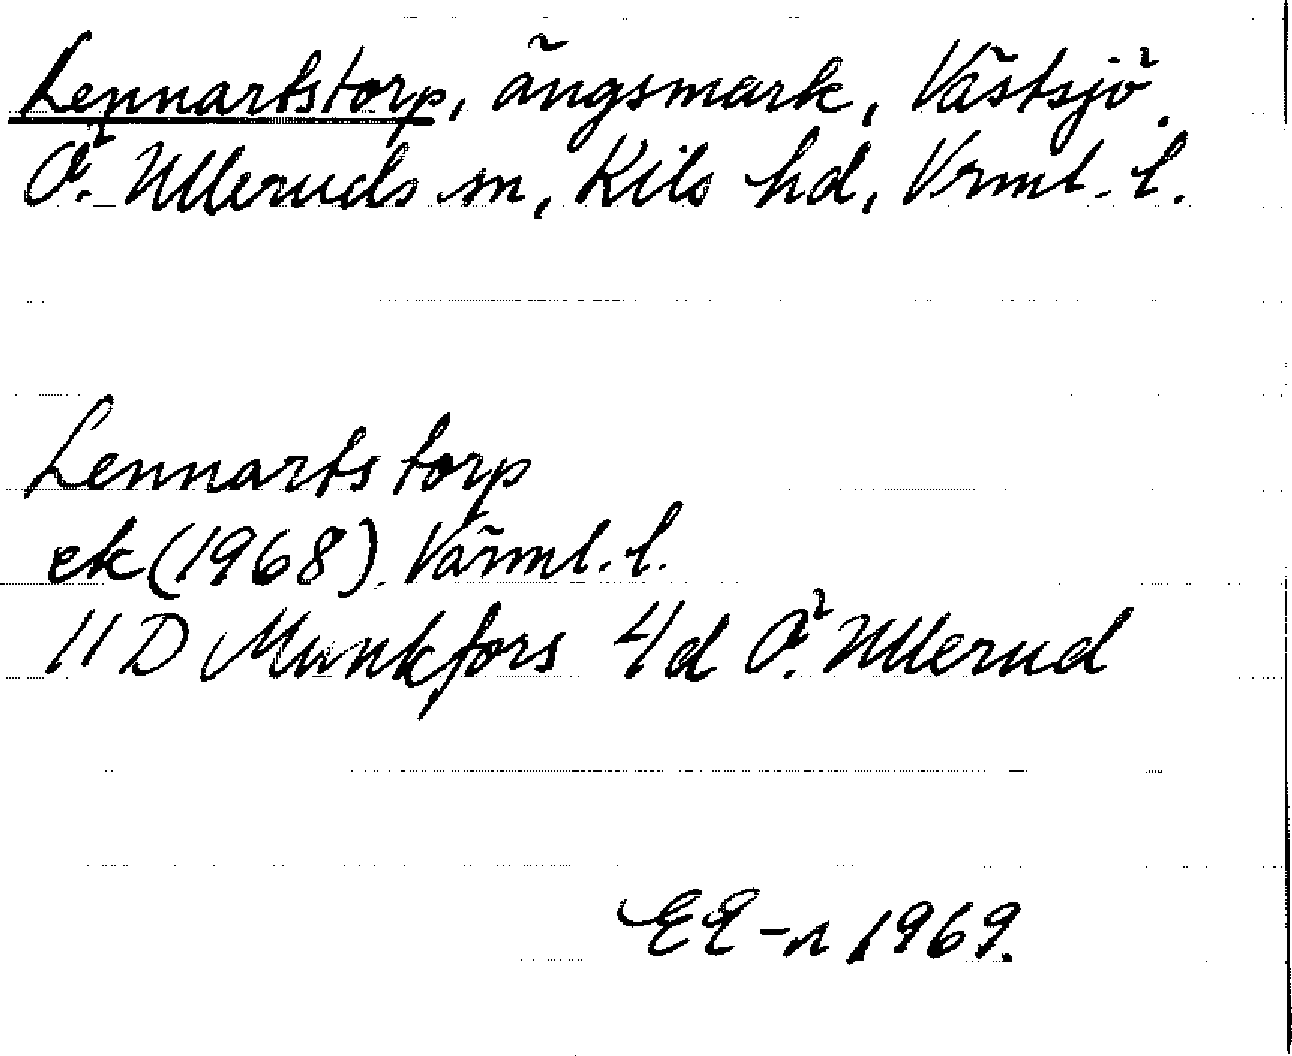 Lennartstorp, ängsmark, Västsjö.
Ö. Ulleruds sn, Kils hd, Vrml. l.
Lennartstorp
ek (1968) Värml. l.
11 D Munkfors 4d Ö. Ullerud
EE-n 1969.